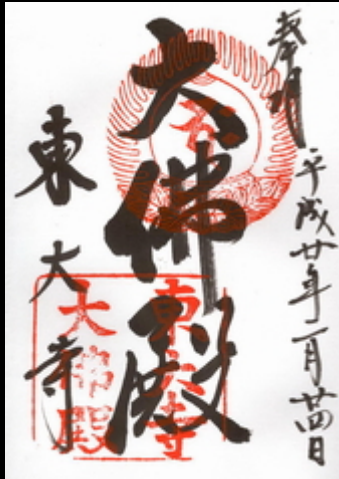 奉拝
平成廿年二月廿四日
大佛殿
東大寺
東大寺
大佛殿